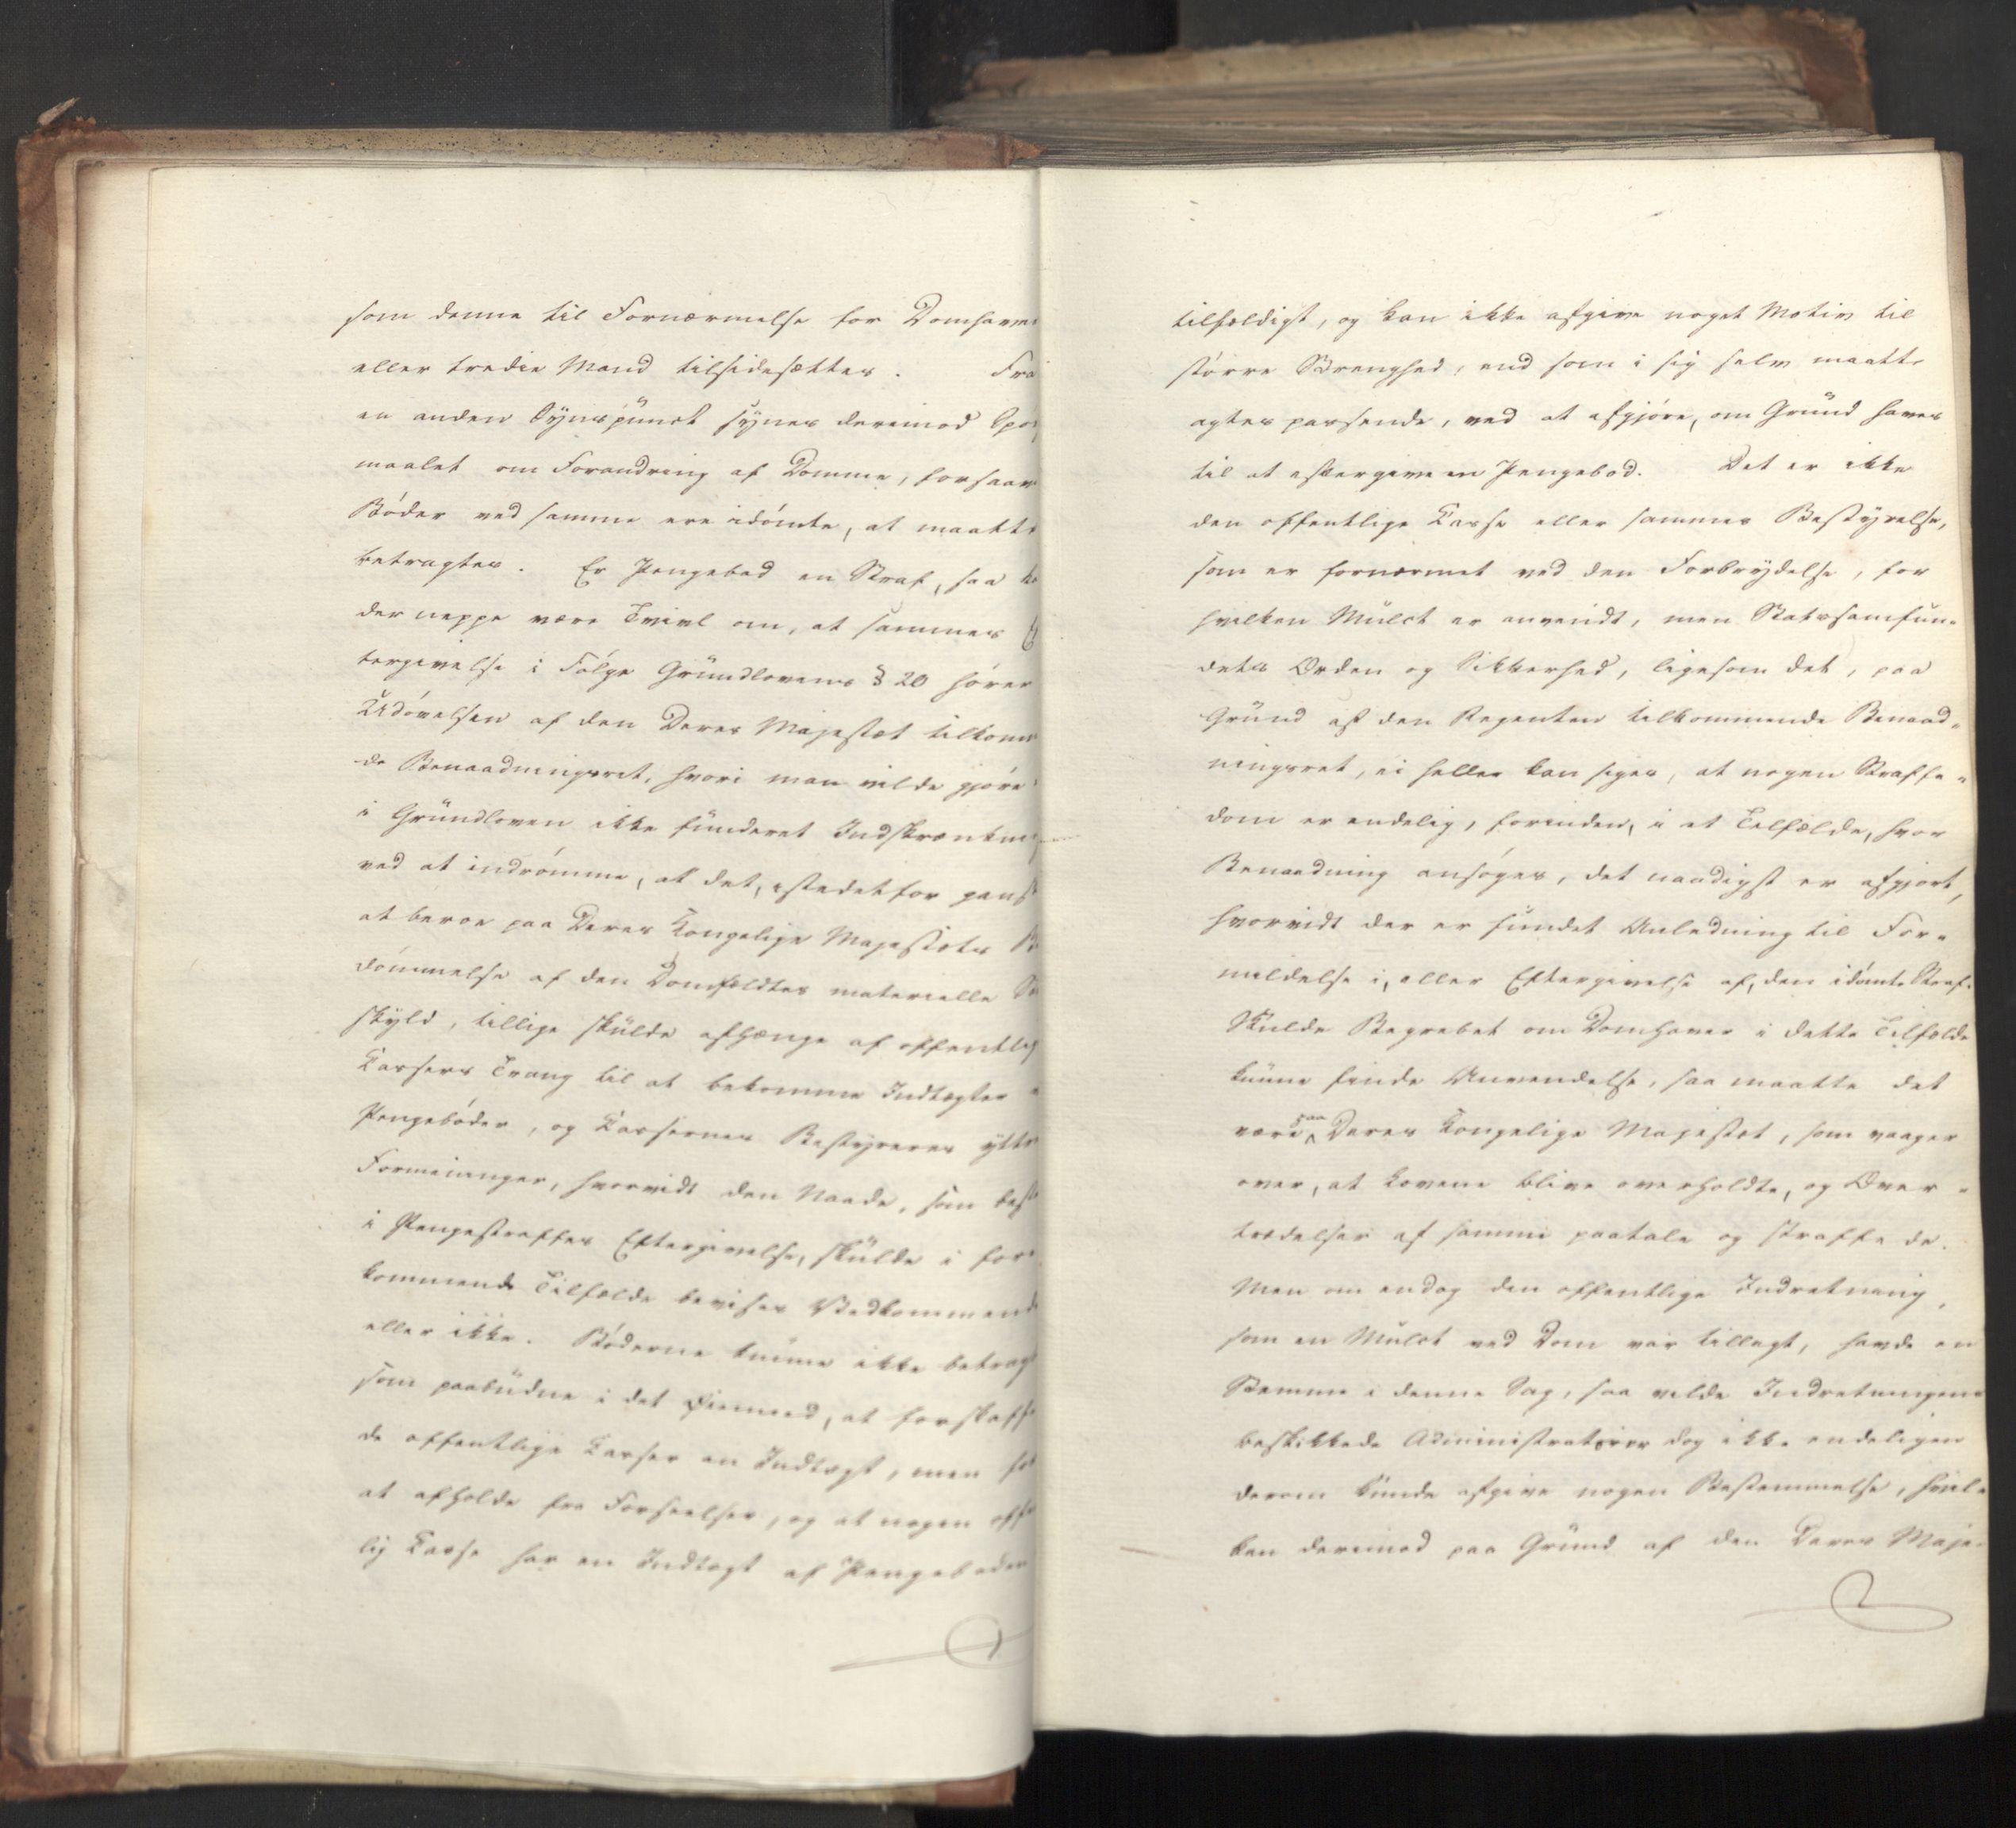 som denne til Fornærmelse for Domhave
eller tredie Mand tilsidesættes. Fra
en anden Synspunct synes derimod Spø
maalet om Forandring af Domme, forsaav
Bøder ved samme ere idømte, at maatte
betragtes. Er Pengebod en Straf, saa ka
der neppe være Tvivl om, at sammes Ef
tergivelse i Følge Grundlovens § 20 hører
Udøvelsen af den Deres Majestæt tilkom
de Benaadningsret, hvori man vilde gjøre
i Grundloven ikke funderet Indskrænkni
ved at indrømme, at det, istedetfor gansk
at beroe paa Deres Kongelige Majestæts Be
dømmelse af den Domfældtes materielle
skyld, tillige skulde afhænge af offentlig
Cassers Trang til at bekomme Indtægter
Pengebøder, og Cassernes Bestyreres yttr
Formeninger, hvorvidt den Naade, som best
i Pengestraffes Eftergivelse, skulde i fore
kommende Tilfælde bevises Vedkommende
eller ikke. Bøderne kunne ikke betrag
som paabudne i det Øiemeed, at forskaffe
de offentlige Casser en Indtægt, men for
at afholde fra Forseelser, og at nogen offe
lig Casse har en Indtægt af Pengebøder
tilfældigt, og kan ikke afgive noget Motiv til
større Strenghed, end som i sig selv maatte
agtes passende, ved at afgjøre, om Grund haves
til at eftergive en Pengebod. Det er ikke
den offentlige Casse eller sammes Bestyrelse,
som er fornærmet ved den Forbrydelse, for
hvilken Mulct er anvendt, men Statssamfun-
dets Orden og Sikkerhed, ligesom det, paa
Grund af den Regenten tilkommende Benaad-
ningsret, ei heller kan siges, at nogen Straffe-
dom er endelig, forinden, i et Tilfælde, hvor
Benaadning ansøges, det naadigst er afgjort,
hvorvidt der er fundet Anledning til For-
mildelse i, eller Eftergivelse af, den idømte Straf.
Skulde Begrebet om Domhaver i dette Tilfælde
kunne finde Anvendelse, saa maatte det
være paa Deres Kongelige Majestæt, som vaager
over, at Lovene blive overholdte, og Over-
trædelser af samme paatale og straffede.
Men om endog den offentlige Indretning,
som en Mulct ved Dom var tillagt, havde en
Stemme i denne Sag, saa vilde Indretningens
beskikkede Administratorer dog ikke endeligen
derom kunde afgive nogen Bestemmelse, hvil-
ken derimod paa Grund af den Deres Maje-